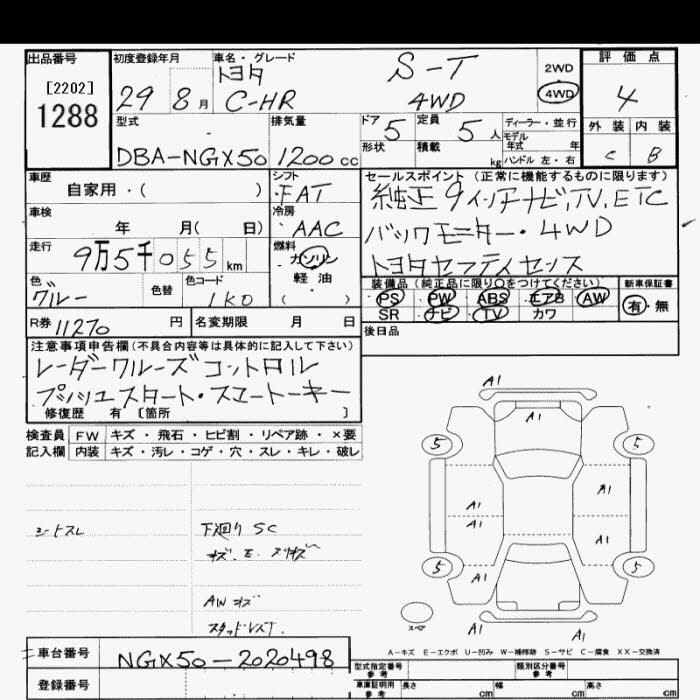 出品番号 初度登録年月 車名・グレード 評価点
[2202] トヨタ S-T 2WD
1288 29 8月 C-HR 4WD 4WD 4
型式 排気量 ドア 5 定員 5人 ディーラー・並行 外装 内装
モデル 年式 年
DBA-NGX50 1200cc 形状 積載 kg ハンドル 左・右 C B
車歴 シフト セールスポイント (正常に機能するものに限ります)
自家用・( ) FAT 純正9インチナビ,TV,ETC
車検 冷房
年 月( 日) AAC バックモニター・4WD
走行 燃料
9万5千055km ガソリン トヨタセーフティセンス
色 色替 色コード 軽油 装備品 (純正品に限り○をつけてください) 新車保証書
グレー 1K0 ( ) PS PW ABS エアB AW 有・無
SR ナビ TV カワ
R券 11270円 名変期限 月 日 後日品
注意事項申告欄(不具合内容等は具体的に記入して下さい)
レーダークルーズコントロル
プッシュスタート・スマートキー
修復歴 有 〔箇所 〕
検査員 FW キズ・飛石・ヒビ割・リペア跡・×要
記入欄 内装 キズ・汚レ・コゲ・穴・スレ・キレ・破レ
A1
A1
5 5
A1 A1
A1 A1
5 5
A1
スペア A1
シートスレ 下廻りSC
AWキズ
A-キズ E-エクボ U-凹み W-補修跡 S-サビ C-腐食 XX-交換済
車台番号 NGX50-2020498
登録番号
型式指定番号 参考 類別区分番号 参考
車庫証明用 参考 長さ cm 幅 cm 高さ cm